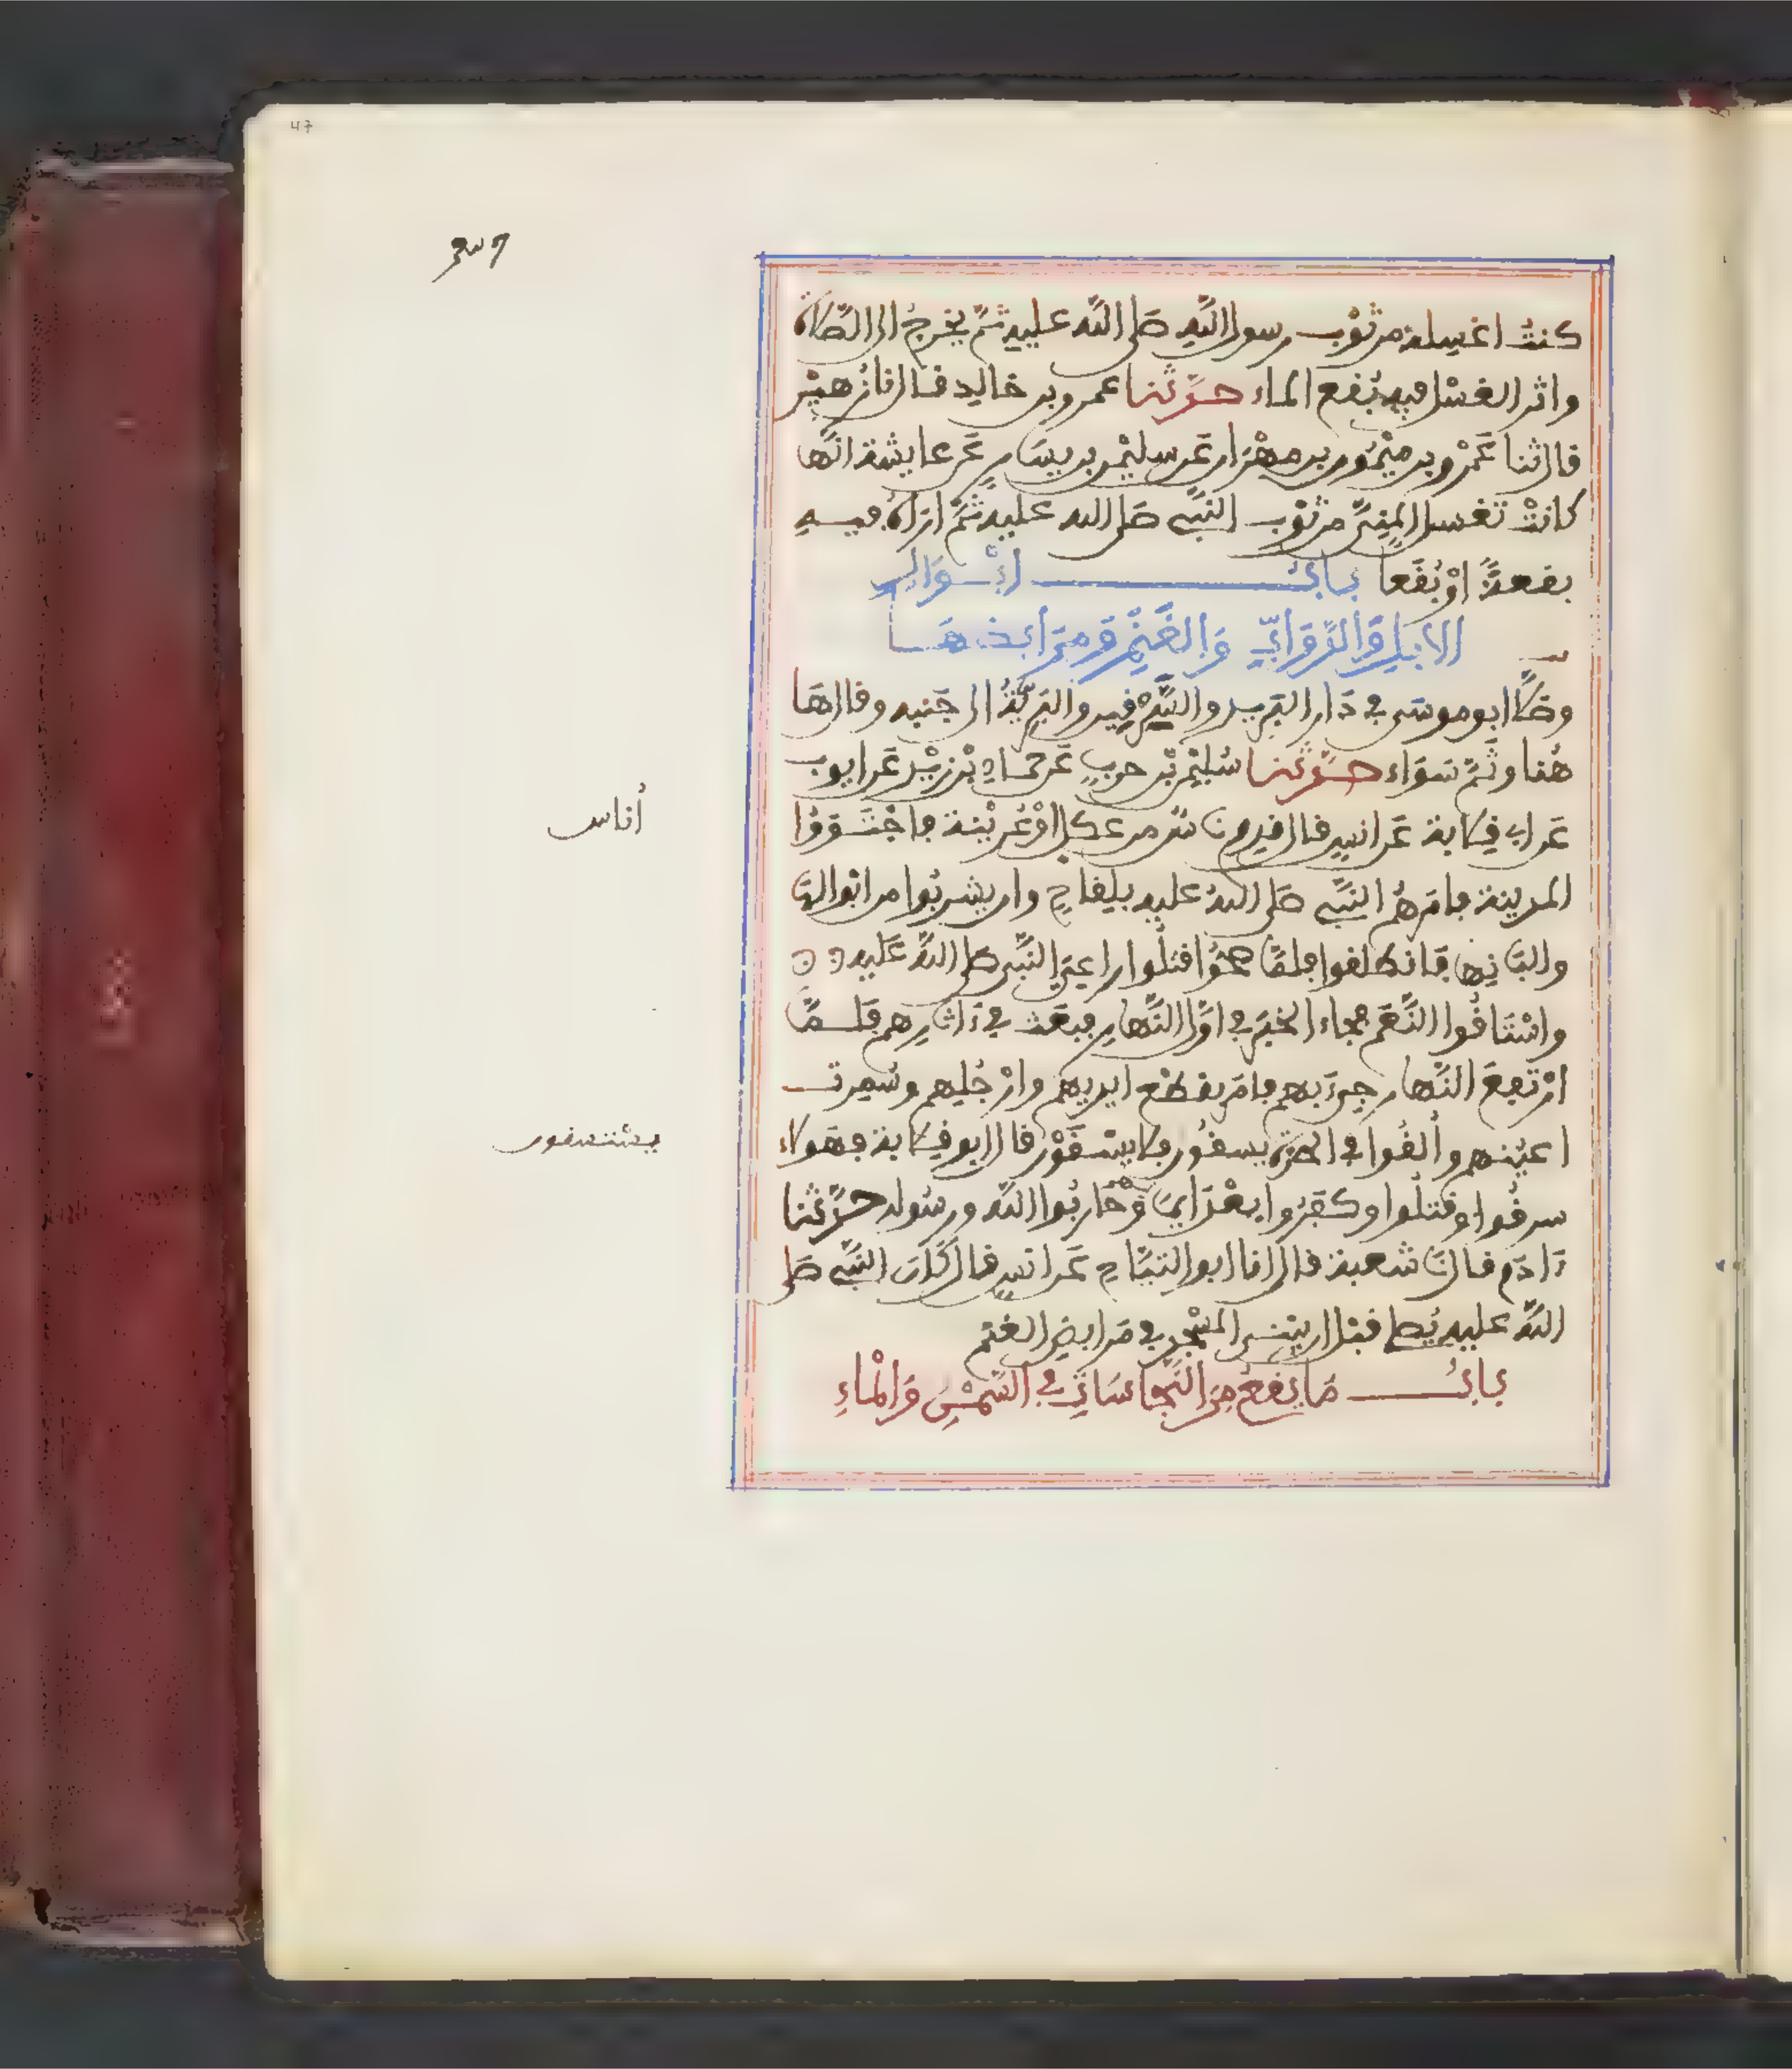 47
كنتُ اغسِله من ثوْب رسول اللَّهِ صَلى اللَّه عليه ثمَّ يخرجُ الى الصَّلاة
واثر الغسْل فيه بُقع الماء حدَّثنا عمرو بن خالِد قال انا زُهيْر
قال ثنا عَمْرو بن ميْمُون بن مِهْران عَن سليمٰن بن يسَارٍ عَن عايشة انَّها
كانتْ تغسل المنِيَّ من ثوْب النَّبي صَلى الله عليه ثمَّ اراهُ فيــه
بقعةً اوْ بُقَعا بابُ ابْــوَالِ
الابِلِ وَالدَّوَابِّ وَالغَنَمِ وَمَرَابِضهَــا
وصَلَّا ابو موسَى في دَار البَرِيدِ والسِّرْقِين والبَرِّيَّةُ الى جَنبه وقال هَا
هُنا وثَمَّ سَوَاء حدَّثنا سُليْمٰن بْن حربٍ عَن حمادِ بْن زيْد عَن ايوب
عَن ابي قِلابة عَن انسٍ قال قدِم نا سٌ من عكل اوْ عُريْنة فاجْتَــوَوُا
المدينة فامَرهُم النَّبي صَلى اللهُ عليه بلِقاحٍ وان يشربُوا من ابوالِهَا
والبَانِها فَانطلقوا فلمَّا صحُّوا قتلُوا راعيَ النَّبي صَلى اللَّهُ عَليه
واسْتَاقُوا النَّعَم فجاء الخبَر في اوَّل النَّهارِ فبعَث في ءَاثارِهم فَلــمَّا
ارْتفعَ النَّهار جِيءَ بهم فامَر بقطْع ايديهم وارْجُلِهم وسُمِرتــ
اعيُنهم وأُلقُوا في الحرَّةِ يسقُون فلا يسْــقَوْن قال ابو قِلابة فهَولاء
سرقُوا وقتلُوا وكفَرُوا بعْدَ ايمَا وَحَاربُوا اللَّه ورسُوله حدَّثنا
ءَادَم قال نَا شعبة قال انا ابو التيَّاحِ عَن انسٍ قال كَانَ النَّبي صَلى
اللَّهُ عليه يُصلي قبْل ان يبْنى المسْجد في مَرابض الغنَم
بابُ مَا يقعُ مِنَ النَّجاسَاتِ في السَّمْنِ وَالْمَاءِ
أناس
يستسقون